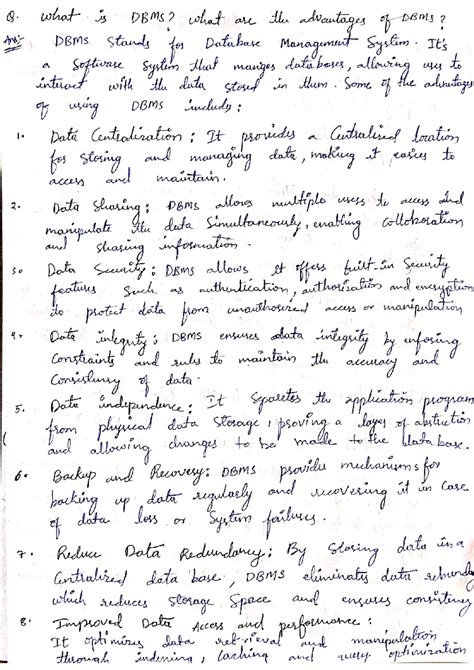 Q. What is DBMS? What are the advantages of DBMS?
Ans:- DBMS Stands for Database Management System. It's
a Software System that manges databases, allowing uses to
interact with the data stored in them. Some of the advantages
of using DBMS include:
1. Data Centralization: It provides a Centralised location
for storing and managing data, making it easies to
access and maintain.
2. Data Sharing: DBMS allows multiple uses to access and
manipulate the data Simultaneously, enabling collaboration
and sharing information.
3. Data Security: DBMS allows it offers built-in Security
features Such as authentication, authorisation and encryption
to protect data from unauthorized access or manipulation
4. Data integrity: DBMS ensures data integrity by enforcing
Constraints and rules to maintain the accuracy and
Consistency of data.
5. Data independence: It Sparetes the application program
from physical data Storage, proving a layes of abstriction
and allowing changes to be made to the data base.
6. Backup and Recovery: DBMS provides mechanisms for
backing up data regularly and recovering it in Case
of data loss or System failures.
7. Reduce Data Redundancy: By Storing data in a
Centralized data base, DBMS eliminates data redundy
which reduces Storage Space and ensures consistency
8. Improved Data Access and performance:
It optimizes data retrieval and manipulation
through indexing, Caching and query optimization